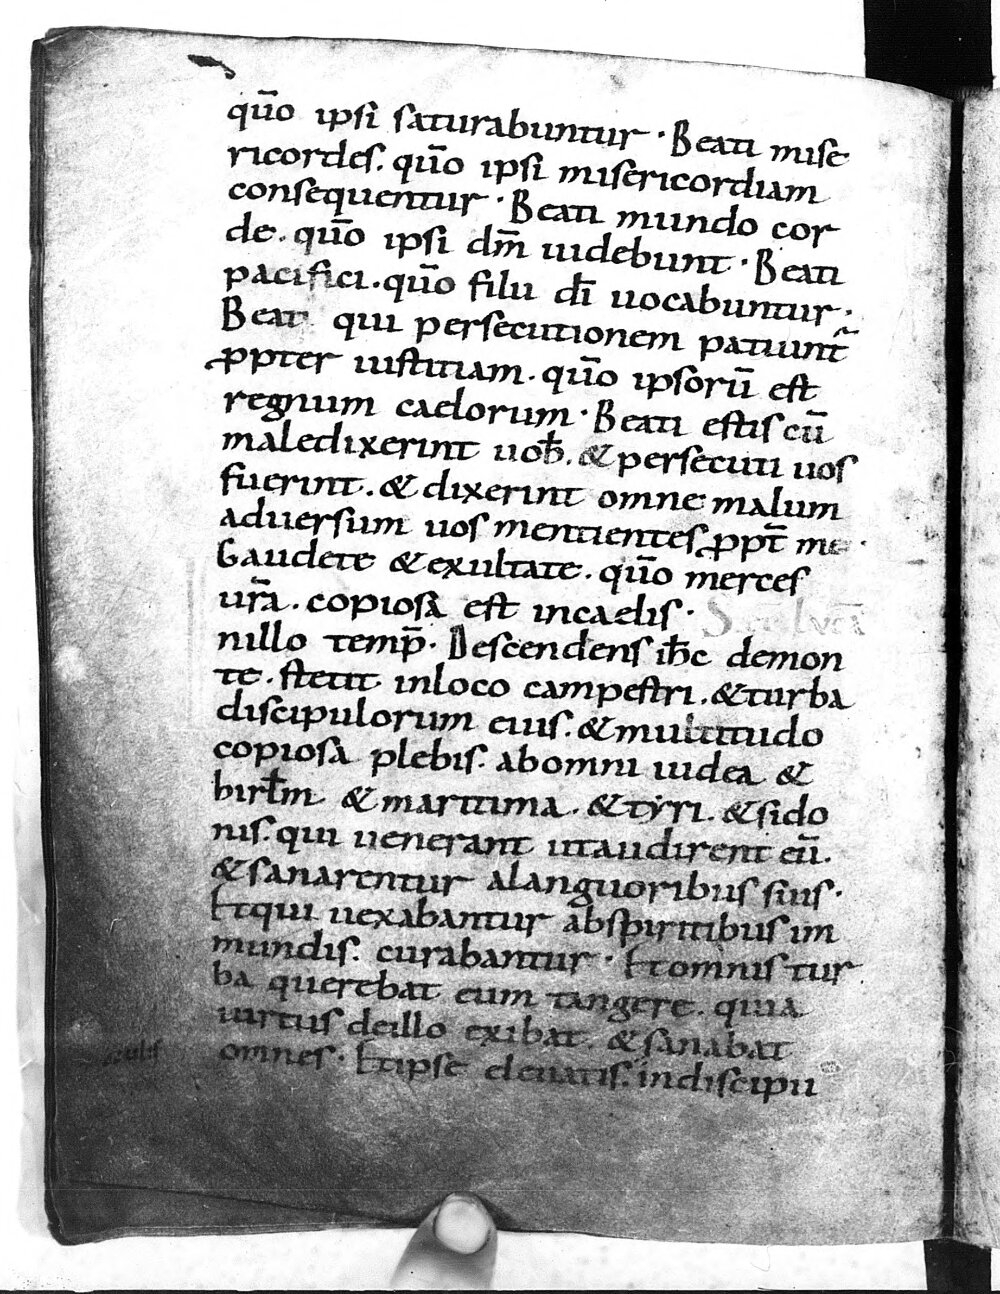 quo̅ ipsi saturabuntur · Beati mise
ricordes. quo̅ ipsi misericordiam
consequentur · Beati mundo cor
de. quo̅ ipsi dm̅ uidebunt · Beati
pacifici. quo̅ filii di̅ uocabuntur ·
Beati qui persecutionem patiunt̃
ꝓpter iustitiam. quo̅ ipsoru̅ est
regnum caelorum · Beati estis cu̅
maledixerint uob̅. & persecuti uos
fuerint. & dixerint omne malum
aduersum uos mentientes ꝓpt̅ me ·
Gaudete & exultate. quo̅ merces
ur̅a. copiosa est incaelis · S
nillo temp̅. Descendens ih̅c demon
te. stetit inloco campestri. & turba
discipulorum eius. & multitudo
copiosa plebis. abomni iudea &
hirłm & maritima. & tyri. & sido
nis. qui uenerant utaudirent eu̅.
& sanarentur alanguoribus suis ·
Etqui uexabantur abspiritibus im
mundis. curabantur · Etomnis tur
ba querebat eum tangere. quia
uirtus deillo exibat. & sanabat
omnes · Etipse eleuatis. indiscipu